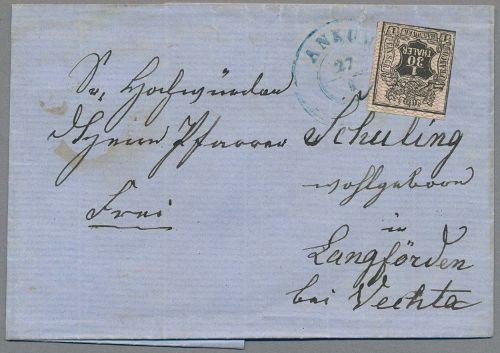 ANKUM
27
1
THALER
30
Sr. Hochwürden
dem Herrn Pfarrer Schuling
wohlgeboren
Frei
in
Langförden
bei Vechta